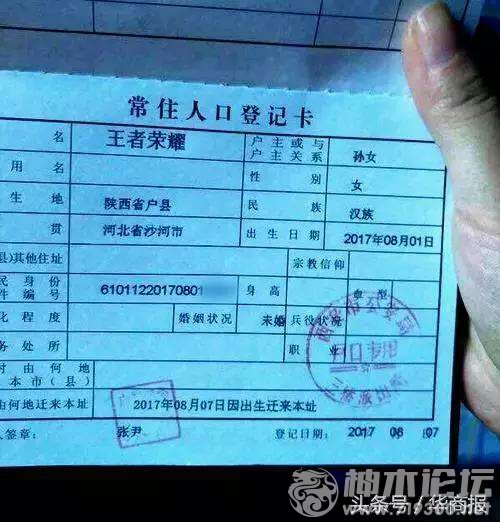 常住人口登记卡
名 王者荣耀 户主或与户主关系 孙女
用名 性别 女
生地 陕西省户县 民族 汉族
贯 河北省沙河市 出生日期 2017年08月01日
县)其他住址 宗教信仰
民身份件编号 61011220170801 身高 血型
化程度 婚姻状况 未婚 兵役状况
务处所 职业
时由何地本市(县)
由何地迁来本址 2017年08月07日因出生迁来本址
人签章: 张尹 登记日期: 2017 08 07
柚木论坛
头条号/华商报